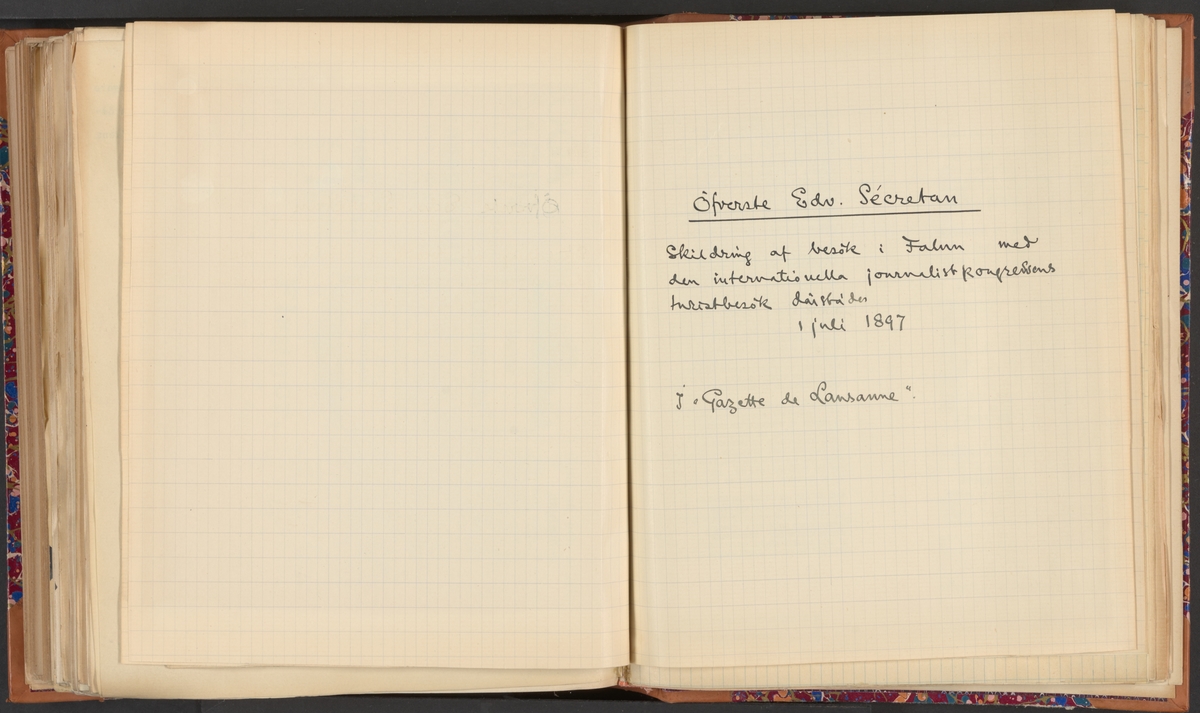 Öfverste Edv. Sécretan
Skildring af besök i Falun med
den internationella journalistkongressens
turistbesök därstädes
1 juli 1897
I „Gazette de Lausanne“.